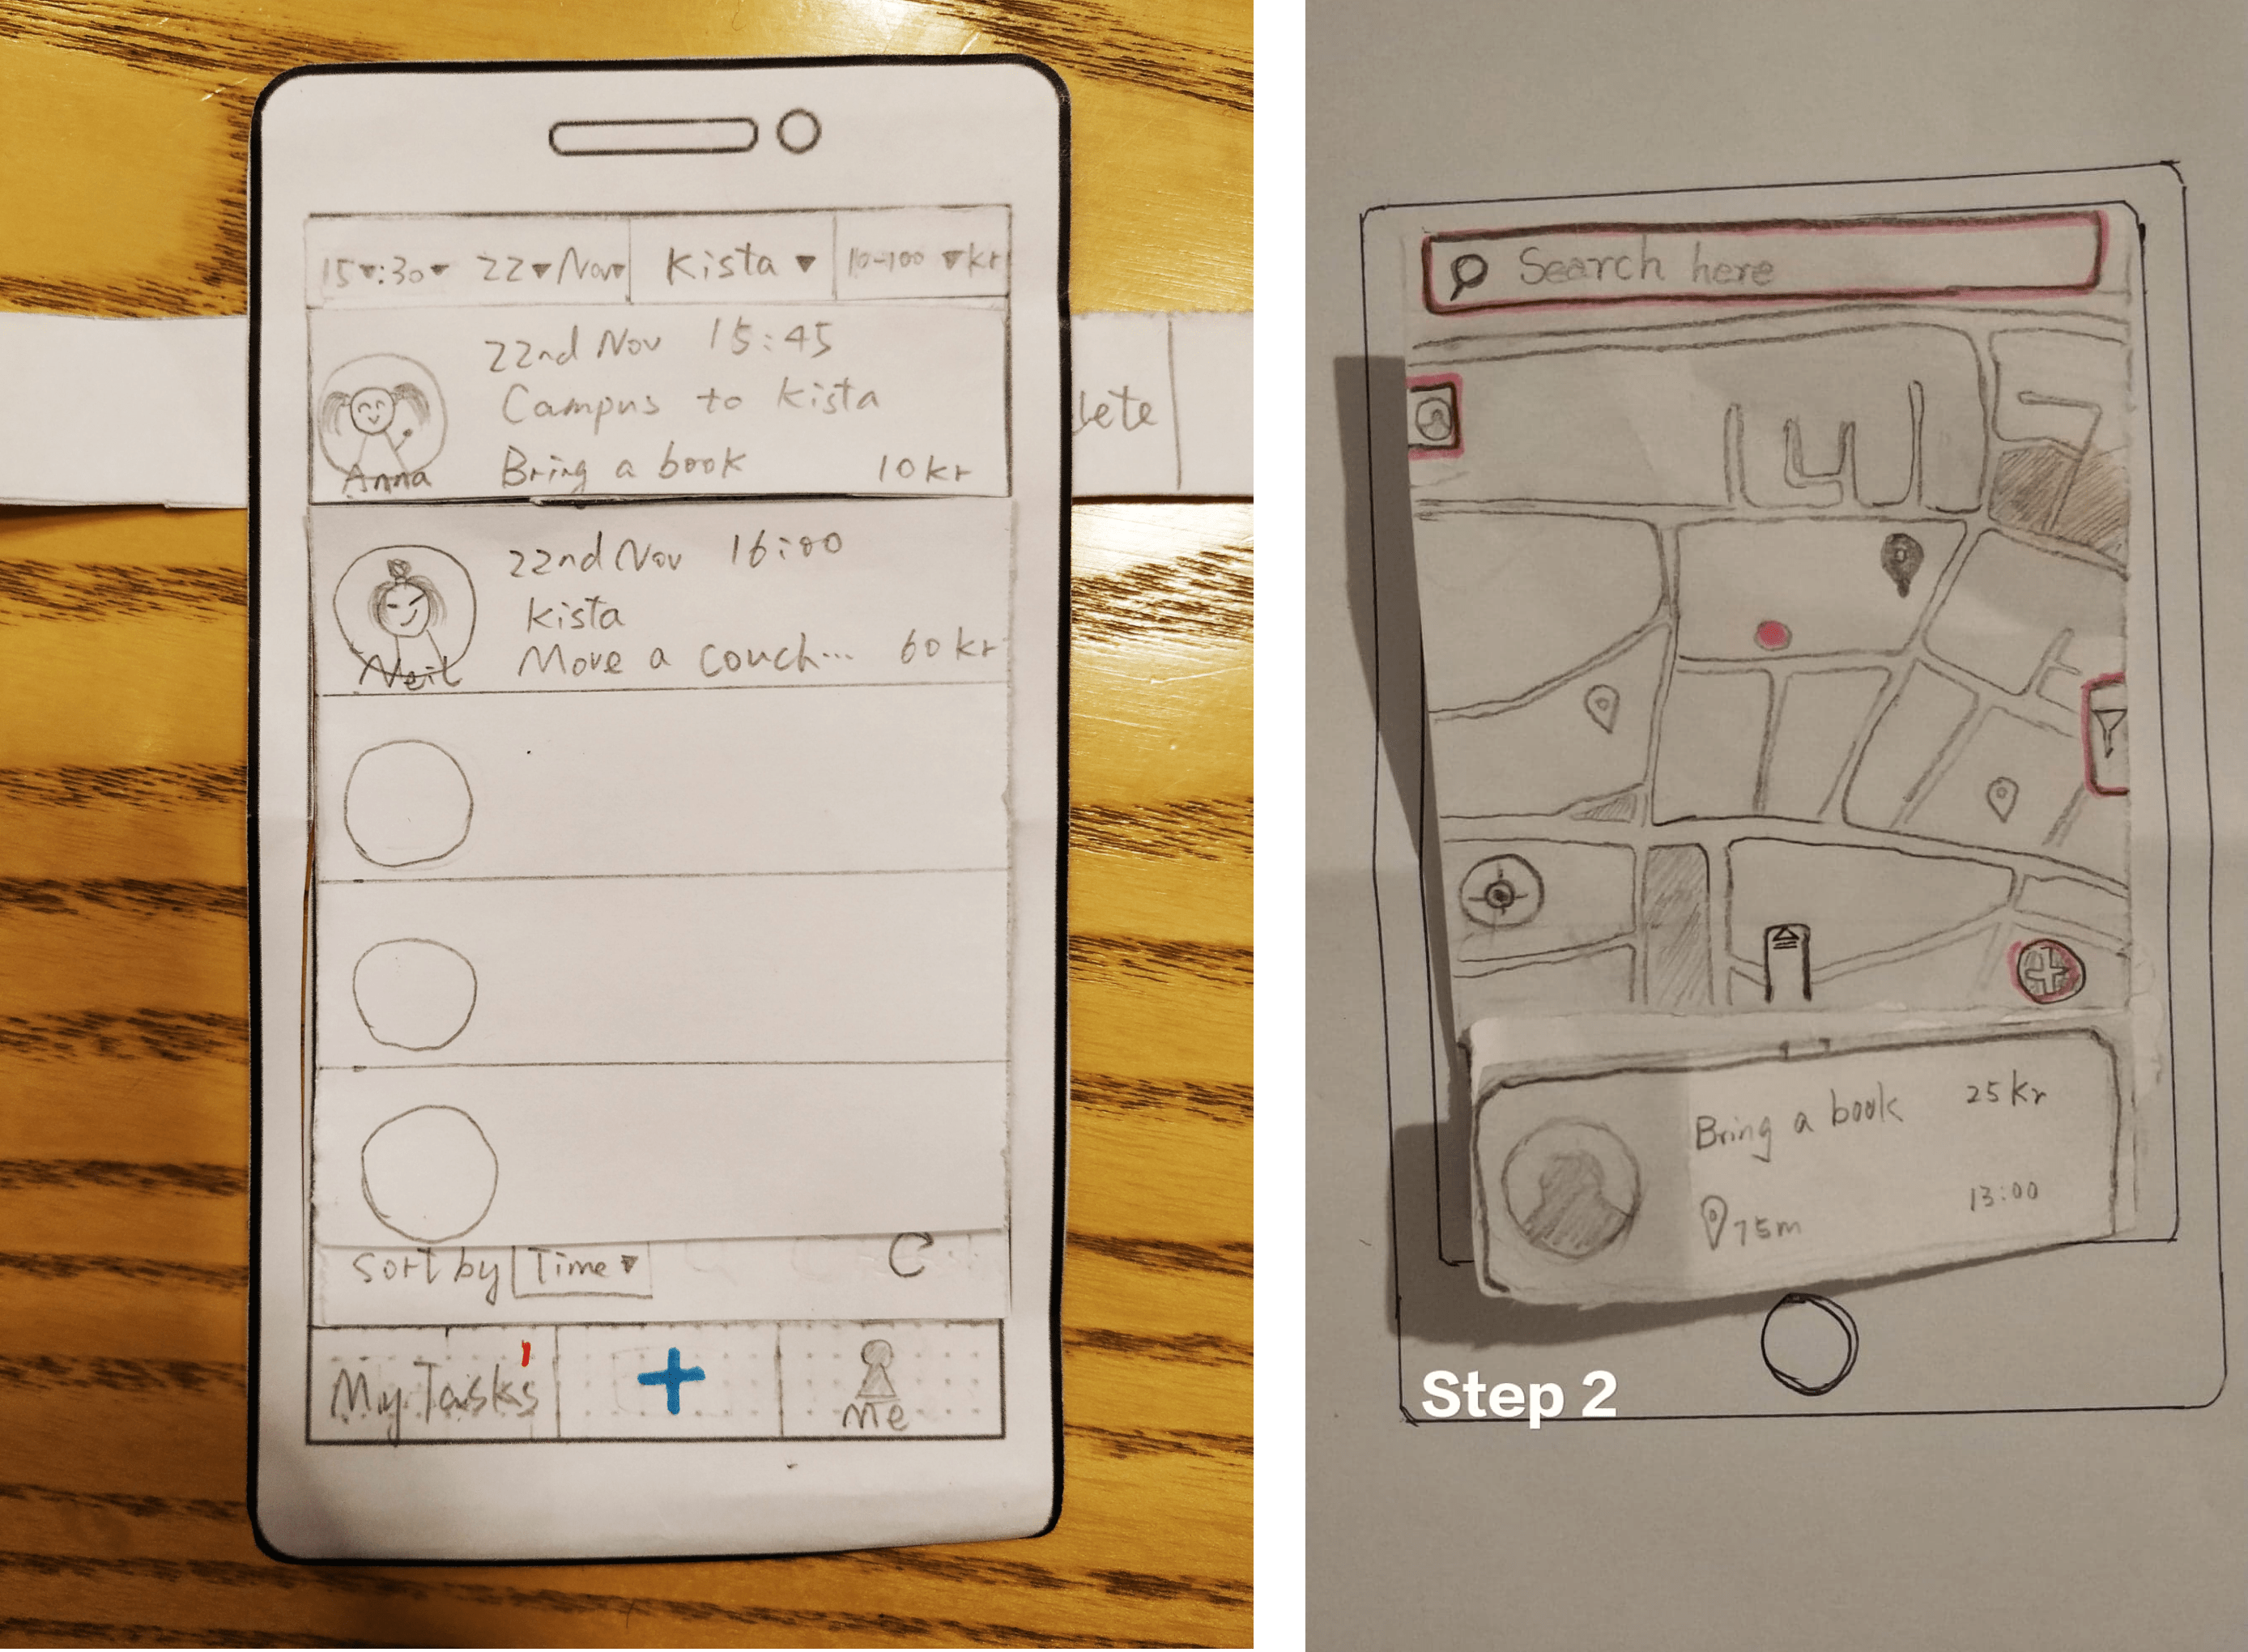 15▾:30▾ 22▾Nov▾ Kista ▾ 10-100 ▾kr
22nd Nov 15:45
Campus to Kista
Bring a book 10kr
Anna
lete
22nd Nov 16:00
Kista
Move a couch... 60kr
Neil
Sort by Time ▾
My Tasks 1
+
Me
Search here
Bring a book 25kr
75m 13:00
Step 2